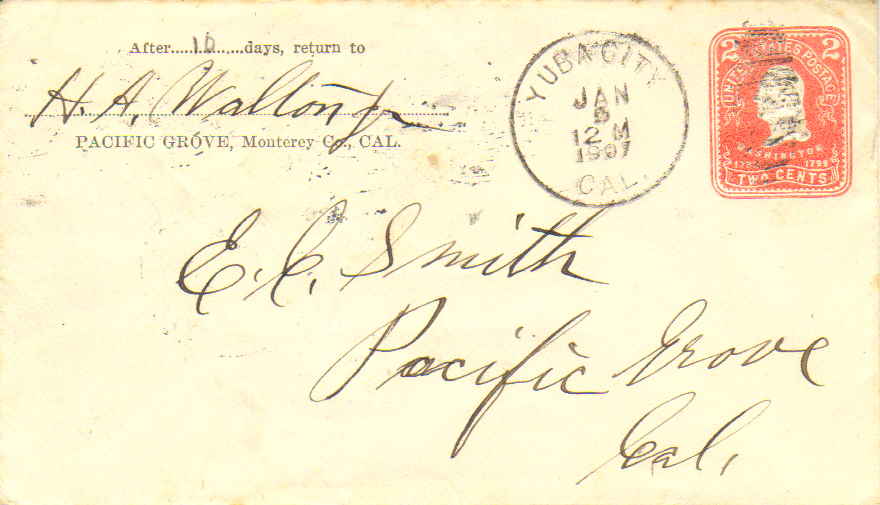 After....10....days, return to
H. A. Walton Jr
PACIFIC GROVE, Monterey Co., CAL.
YUBA CITY
JAN
5
12 M
1907
CAL.
2 UNITED STATES POSTAGE 2
WASHINGTON
1799
TWO CENTS
E. C. Smith
Pacific Grove
Cal.